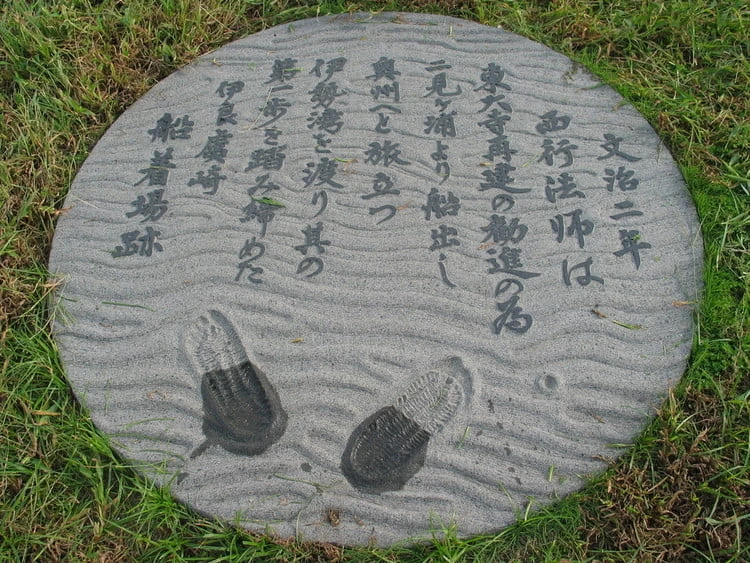 文治二年
西行法師は
東大寺再建の勧進の為
二見ヶ浦より船出し
奥州へと旅立つ
伊勢湾を渡り其の
第一歩を踏み締めた
伊良廣崎
船着場跡